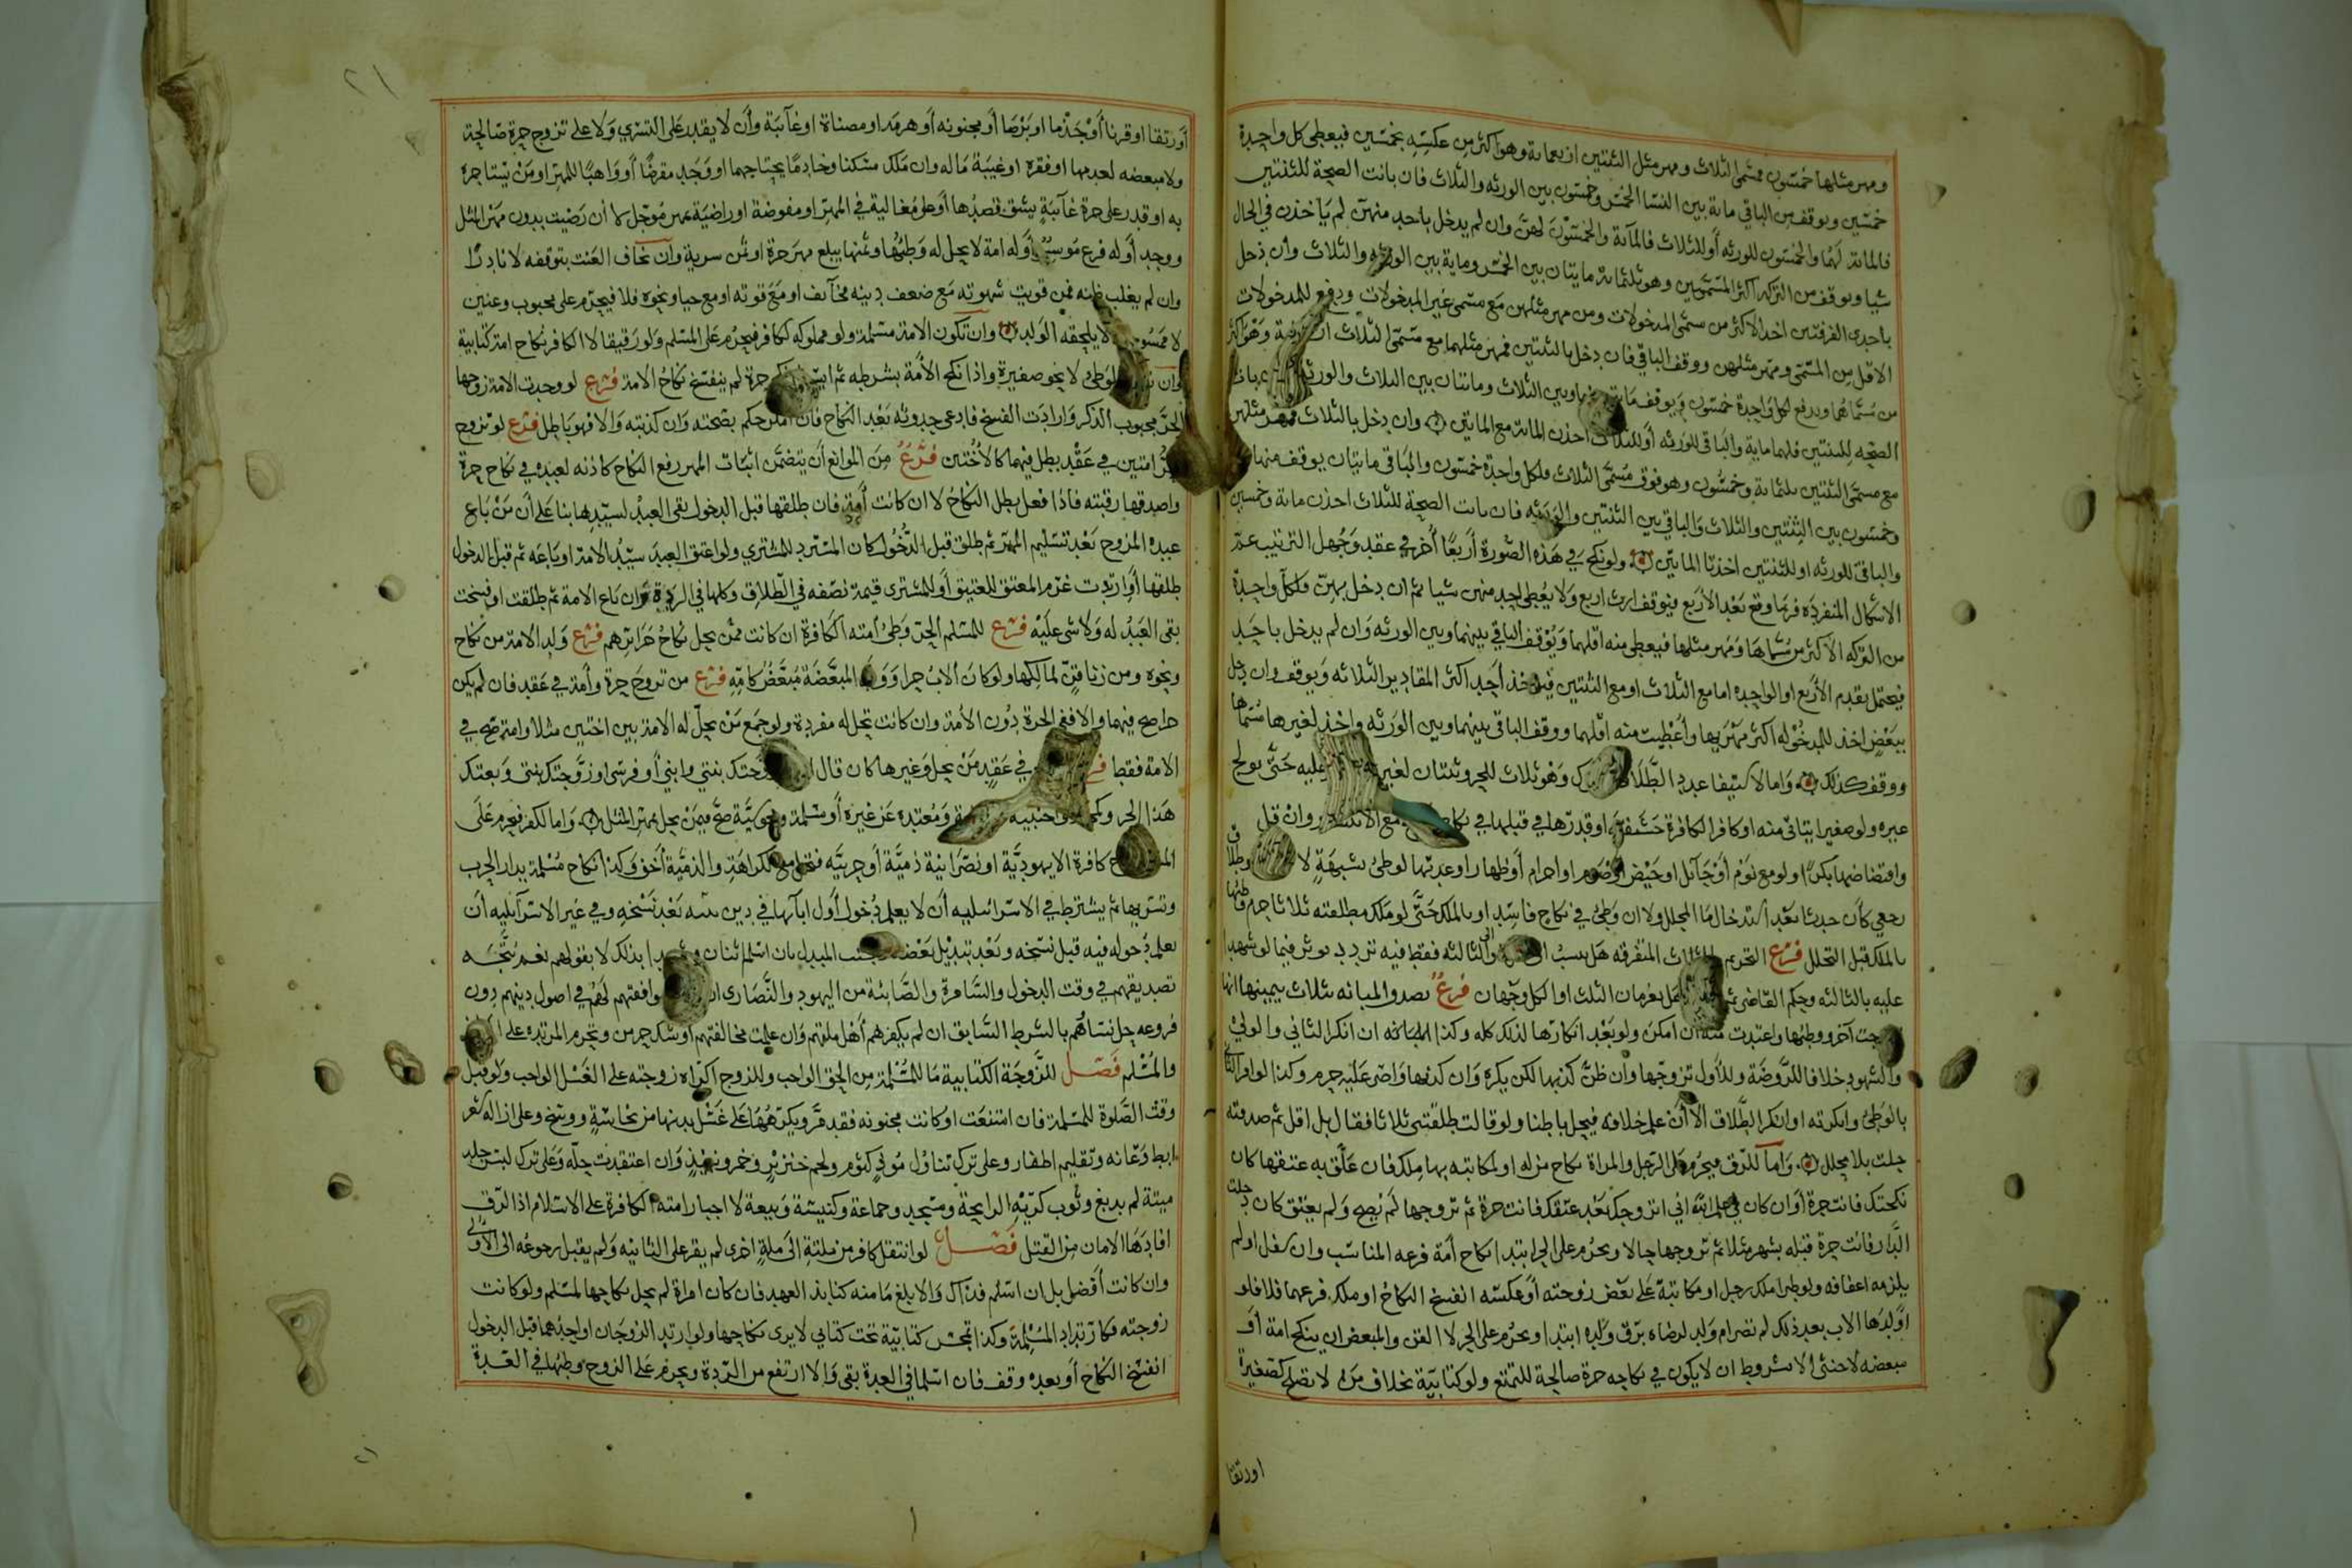 ومهر مثلها خمسون فمسمى الثلاث ومهر مثل الثنتين اربعماية وهو اكثر من عكسه بخمسين فيعطى كل واحدة
خمسين ويوقف من الباقي ماية بين النسا الخمس وخمسون بين الورثه والثلاث فان بانت الصحة للثنتين
فالماية لهما والخمسون للورثه أو للثلاث فالمآية والخمسون لهنّ وان لم يدخل باحد منهن لم يأخذن في الحال
شيا ويوقف من التركه اكثر المسميين وهو ثلثماية مايتان بين الخمس وماية بين الورثه والثلاث وان دخل
باحدى الفرقتين اخذ الاكثر من مسمى المدخولات ومن مهر مثلهن مع مسمى غير المدخولات ودفع للمدخولات
الاقل من المسمى ومهر مثلهن ووقف الباقي فان دخل بالثنتين فمهر مثلهما مع مسمى الثلاث وهو اكثر
من مسماهما ويدفع لكل واحدة خمسون ويوقف وبين الثلاث ومايتان بين الثلاث والورثه
الصحه للثنتين فلهما ماية والباقي للورثه أو للثلاث اخذن الماية مع المايتين وان دخل بالثلاث فمهر مثلهن
مع مسمى الثنتين ثلثماية وخمسون وهو فوق مسمى الثلاث ولكل واحدة خمسون والباقي مايتان يوقف منها
وخمسون بين الثنتين والثلاث والباقي بين الثنتين والورثه فان بانت الصحة للثلاث اخذن ماية وخمسين
والباقي للورثه او للثنتين اخذتا المايتين ولو نكح في هذه الصورة أربعًا أخر في عقد وجهل الترتيب عمّ
الاشكال المنفردة فربما وقع بعد الاربع فيوقف ارث اربع ولا يعطى احد منهن شيا ثم ان دخل بهن فلكل واحدة
من التركه الاكثر من مسماها ومهر مثلها فيعطى منه اقلهما ويوقف الباقي بينهما وبين الورثه وان لم يدخل باحد
فيحتمل تقدم الاربع او الواحده اما مع الثلاث او مع الثنتين فيوخذ اكثر المقادير الثلاثه ويوقف وان دخل
ببعض اخذ للمدخوله اكثر مهريها وأعطيت منه اقلهما ووقف الباقي بينهما وبين الورثه واخذ لغيرها مسماها
ووقف كذلك وأما الاستيفا عدد الطلاق وهو ثلاث للحر وثنتان لغيره عليه حتى يولج
غيره ولو صغيرا يتاتى منه او كافرا لكافرة حشفة او قدرها في قبلها في نكاح مع الانتشار وان قل
وافتضاضها بكرًا ولو مع نوم أو حائل او حيض او صوم او احرام أو ظهار او عدتها لوطئ شبهة لا وطلاق
رجعي كأن حدثا بعد استدخال ما المحلل ولا ان وطئ في نكاح فاسد او بالملك حتى لو ملك مطلقته ثلاثا حرم وطئها
بالملك قبل التحلل فرع التحريم بالثلاث المتفرقه هل ينسب الى او الى الثالثه فقط فيه تردد يوثر فيما لو شهدا
عليه بالثالثه وحكم القاضي ثم يغرمان الثلث او الكل وجهان فرع تصدق المبانه بثلاث بيمينها انها
آخر ووطئها واعتدت منه ان امكن ولو بعد انكارها لذلك كله وكذا المبانه ان انكر الثاني والولي
والشهود خلافا للروضة وللأول تزوجها وان ظن كذبها لكن يكره وان كذبها واصر عليه حرم وكذا لو اقر الثاني
بالوطئ وانكرته او انكر الطلاق الا أن علم خلافه فيحل باطنا ولو قالت طلقتني ثلاثا فقال بل اقل ثم صدقته
حلت بلا محلل وأما الرق فيحرم على الرجل والمراة نكاح من له او لمكاتبه بها ملك فان علق به عتقها كان
نكحتك فانت حرة أو ان كان في علم الله اني اتزوجك بعد عتقك فانت حرة ثم تزوجها لم يصح ولم يعتق كان دخلت
الدار فانت حرة قبله بشهر مثلا ثم تزوجها حالا ويحرم على الحر ابتدا نكاح أمة فرعه المناسب وان سفل او لم
يلزمه اعفافه ولو طرا ملك رجل او مكاتبة على بعض زوجته أو عكسه انفسخ النكاح او ملك فرعهما فلا فلو
اولدها الاب بعد ذلك لم تصر ام ولد لرضاه برق ولده ابتدا ويحرم على الحر لا القن والمبعض ان ينكح امة أو
مبعضه لاخنثى الا بشروط ان لا يكون في نكاحه حرة صالحة للتمتع ولو كتابية بخلاف من لا تصلح كصغيرة
اورتقا
أو رتقا او قرنا أو جذما او برصا أو مجنونه أو هرمه او مضناة او غآئبة وأن لا يقدر على التسري ولا على تزوج حرة صالحة
ولا مبعضه لعدمها او فقره او غيبة ماله وان ملك مسكنا وخادمًا يحتاجهما او وجد مقرضًا أو واهبًا للمهر او من يستاجره
به او قدر على حرة غآئبة يشق قصدها أو على مغالية في المهر او مفوضة او راضية بمهر مؤجل لا أن رضيت بدون مهر المثل
ووجده أو له فرع موسر أو له امة لا يحل له وطئها وثمنها يبلغ مهر حرة او ثمن سرية وأن يخاف العنت بتوقعه لا نادرًا
وان لم يغلب ظنه فمن قويت شهوته مع ضعف دينه مخآلف او مع قوته او مع حيا ونحوه فلا فيحرم على مجبوب وعنين
لا ممسوح لا يلحقه الولد وان تكون الامة مسلمة ولو مملوكه لكافر فيحرم على المسلم ولو رقيقا لا الكافر نكاح امة كتابية
وان للوطئ لا نحو صغيرة واذا نكح الأمة بشرطه ثم ايسر ونكح حرة لم ينفسخ نكاح الامة فرع لو وجدت الامة زوجها
الحر مجبوب الذكر وارادت الفسخ فادعى حدوثه بعد النكاح فان امكن حكم بصحته وان كذبته والا فهو باطل فرع لو تزوج
حر امتين في عقد بطل فيهما كالاختين فرع من الموانع أن يتضمن اثبات المهر رفع النكاح كاذنه لعبده في نكاح حرة
واصدقها رقبته فاذا فعل بطل النكاح لا ان كانت أمة فان طلقها قبل الدخول بقي العبد لسيدها بنا على أن من باع
عبده المزوج بعد تسليم المهر ثم طلق قبل الدخول كان المسترد للمشتري ولو اعتق العبد سيد الامة او باعه ثم قبل الدخول
طلقها أو ارتدت غرم المعتق للعتيق أو للمشترى قيمة نصفه في الطلاق وكلها في الردة وان باع الامة ثم طلقت او فسخت
بقى العبد له ولا شي عليه فرع للمسلم الحر وطئ أمته الكافرة ان كانت ممن يحل نكاح حرائرهم فرع ولد الامة من نكاح
ونحوه ومن زنا قنّ لمالكها ولو كان الاب حرا وولد المبعضة مبعض كامه فرع من تزوج حرة وأمة في عقد فان لم يكن
حرا صح فيهما والا ففي الحرة دون الأمة وان كانت تحل له مفردة ولو جمع من يحل له الامة بين اختين مثلا وامة صح في
الامة فقط في عقد من يحل وغيرها كان قال زوجتك بنتي وابني أو فرسي او زوجتك بنتي وبعتك
هذا الخر واجنبيه ومعتدة عن غيره أو مسلمة ومجوسية صح فيمن يحل بمهر المثل وأما الكفر فيحرم على
المسلم نكاح كافرة الا يهودية او نصرانية ذمية أو حربية فتحل مع الكراهة والذمية أخف وكذا نكاح مسلمة بدار الحرب
وتسريها ثم يشترط في الاسرائيليه أن لا يعلم دخول أول ابآئها في دين نبيه بعد نسخه وفي غير الاسرآئليه أن
يعلم دخوله فيه قبل نسخه وبعد تبديل بعضه المبدل بان اسلم اثنان وشهدا بذلك لا بقولهم نعم يتجه
تصديقهم في وقت الدخول والسامرة والصابئة من اليهود والنصارى ان وافقتهم لهم في اصول دينهم دون
فروعه حل نسآؤهم بالشرط السابق ان لم يكفرهم أهل ملتهم وان علمت مخالفتهم أو شك حرمن وتحرم المرتده على
والمسلم فصل للزوجة الكتابية ما للمسلمة من الحق الواجب وللزوج اكراه زوجته على الغسل الواجب ولو قبل
وقت الصلوة للمسلمة فان امتنعت او كانت مجنونه فقد مرّ ويكرههما على غسل بدنها من نجاسة ووسخ وعلى ازالة شعر
ابط وعانه وتقليم اظفار وعلى ترك تناول موذٍ كثوم ولحم خنزير وخمر ونبيذ وان اعتقدت حله وعلى ترك لبس جلد
ميتة لم يدبغ وثوب كريه الرايحة ومسجد وجماعة وكنيسة وبيعة لا اجبار امته الكافرة على الاسلام اذ الرق
افادها الامان من القتل فصل لو انتقل كافر من ملة الى ملةٍ اخرى لم يقر على الثانيه ولم يقبل رجوعه الى الاولى
وان كانت أفضل بل ان اسلم فذاك والا بلغ مأمنه كنابذ العهد فان كان امراة لم يحل نكاحها لمسلم ولو كانت
زوجته فكارتداد المسلمة وكذا تمجس كتابية تحت كتابي لا يرى نكاحها ولو ارتد الزوجان او احدهما قبل الدخول
انفسخ النكاح أو بعده وقف فان اسلما في العدة بقي والا ارتفع من الردة ويحرم على الزوج وطئها في العدة